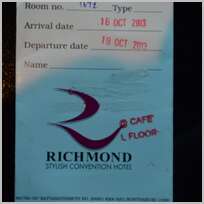 Room no. Type
Arrival date 16 OCT 2013
Departure date 18 OCT 2013
Name
@ CAFE
L FLOOR
RICHMOND
STYLISH CONVENTION HOTEL